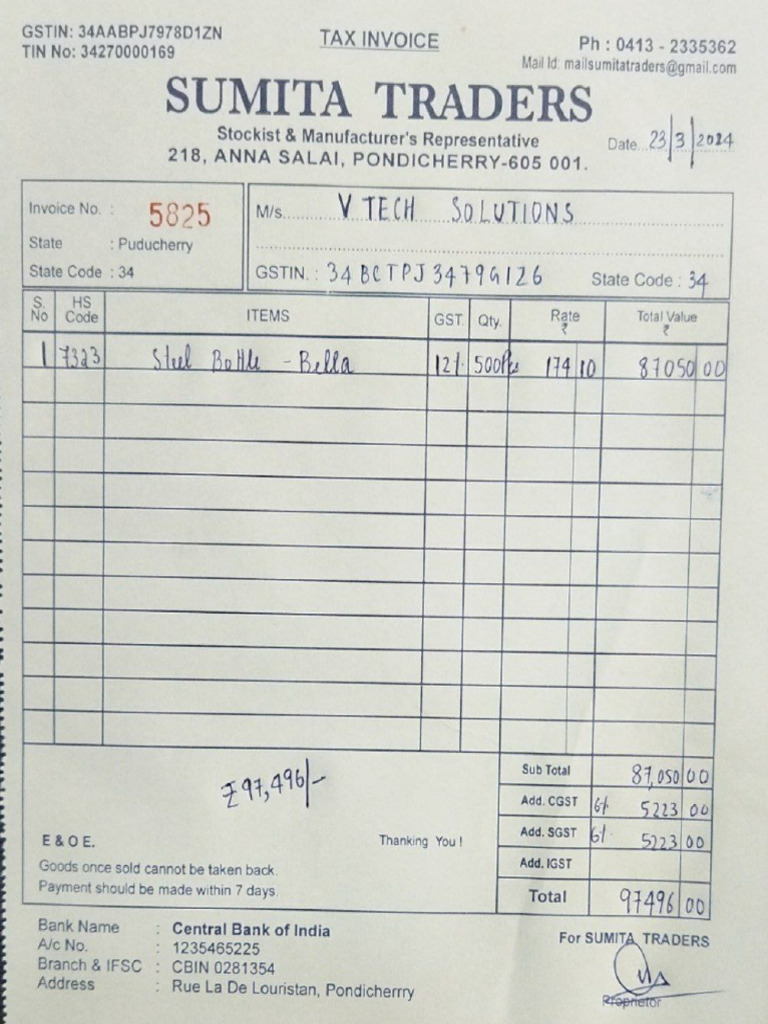 GSTIN: 34AABPJ7978D1ZN
TIN No: 34270000169
TAX INVOICE
Ph : 0413 - 2335362
Mail Id: mailsumitatraders@gmail.com
SUMITA TRADERS
Stockist & Manufacturer's Representative
218, ANNA SALAI, PONDICHERRY-605 001.
Date... 23/3/2024
Invoice No. : 5825
State : Puducherry
State Code : 34
M/s. V TECH SOLUTIONS
GSTIN. : 34BCTPJ3479G1Z6 State Code : 34
S. No HS Code ITEMS GST Qty. Rate ₹ Total Value ₹
1 7323 Steel Bottle - Bella 12% 500Pcs 174 10 87050 00
Sub Total 87,050 00
Add. CGST 6% 5223 00
Add. SGST 6% 5223 00
Add. IGST
Total 97496 00
₹97,496/-
E & O E. Thanking You !
Goods once sold cannot be taken back.
Payment should be made within 7 days.
Bank Name : Central Bank of India
A/c No. : 1235465225
Branch & IFSC : CBIN 0281354
Address : Rue La De Louristan, Pondicherrry
For SUMITA TRADERS
Proprietor